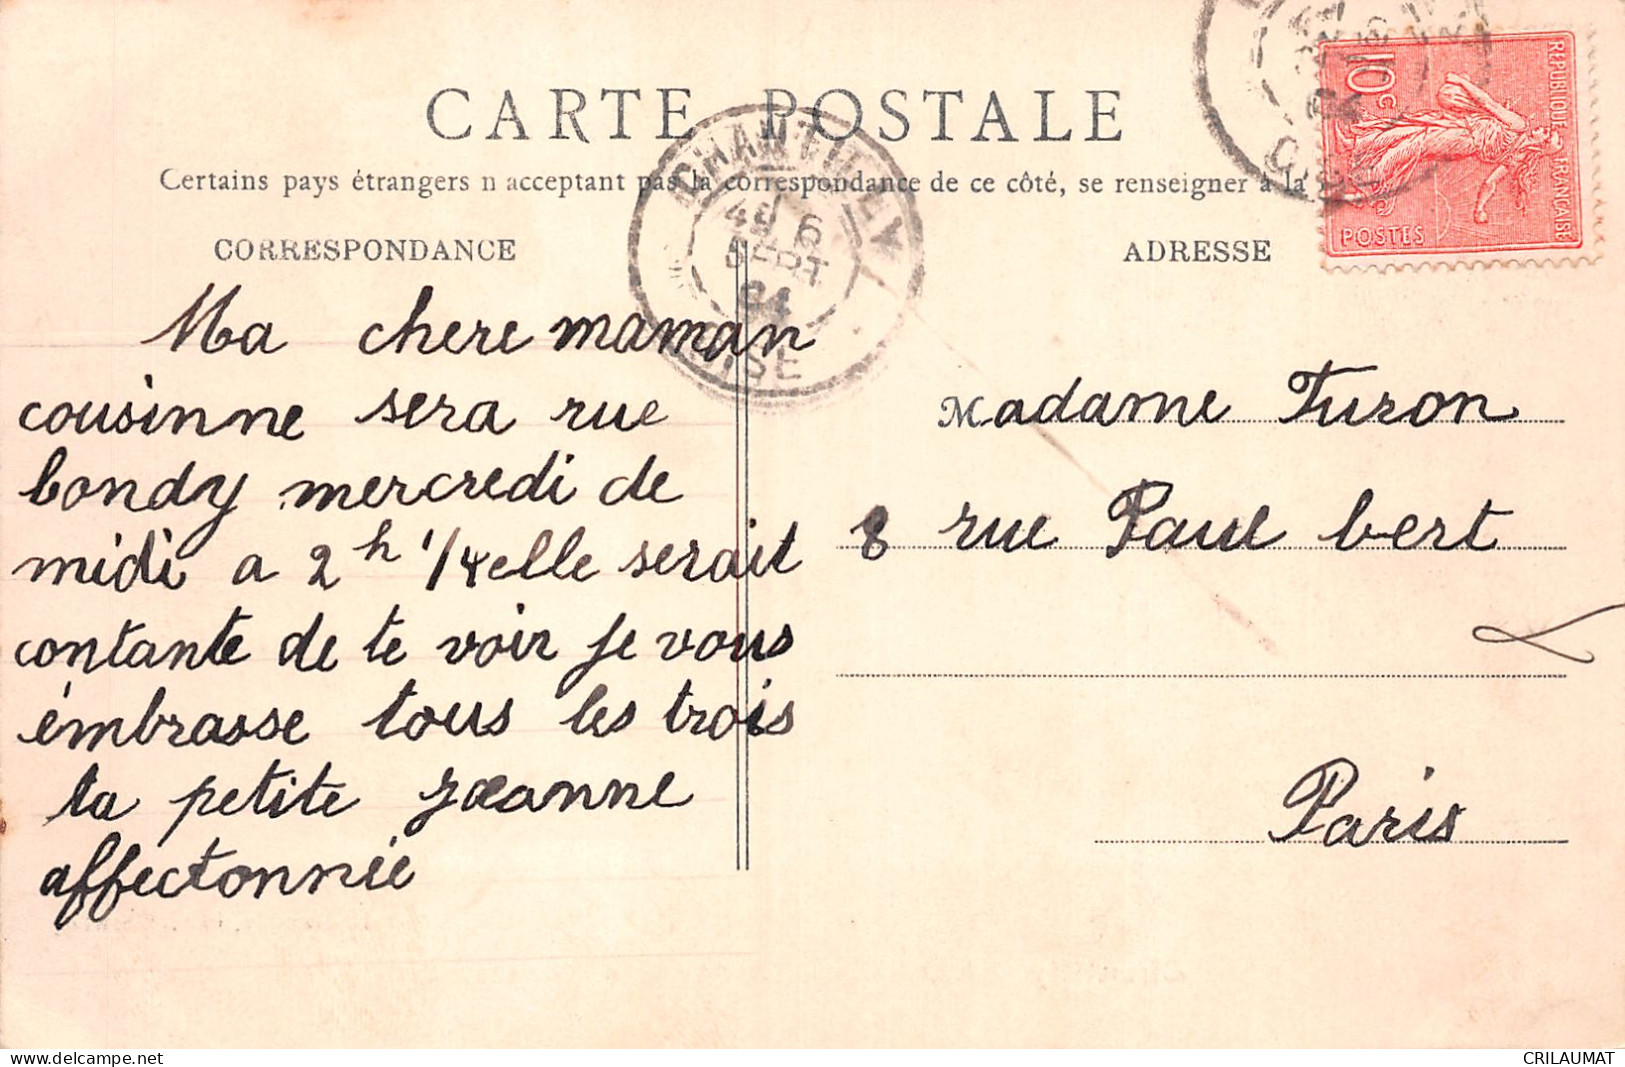 CARTE POSTALE
Certains pays étrangers n acceptant pas la correspondance de ce côté, se renseigner à la
CORRESPONDANCE
Ma chere maman
cousinne sera rue
bondy mercredi de
midi a 2h 1/4 elle serait
contante de te voir je vous
émbrasse tous les trois
ta petite Jeanne
affectonnée
CHANTILLY
6
SEPT
04
OISE
ADRESSE
REPUBLIQUE FRANÇAISE
10c
POSTES
Madame Turon
8 rue Paul bert
Paris
delcampe.net
CRILAUMAT